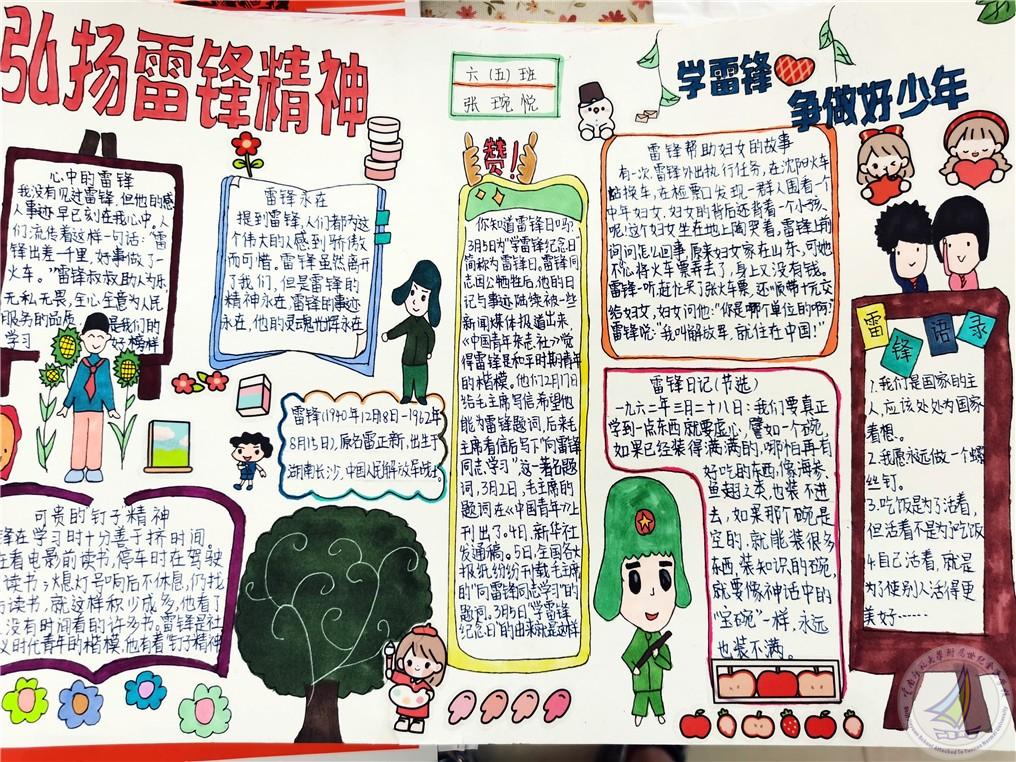 弘扬雷锋精神
六(五)班
张琬悦
学雷锋
争做好少年
心中的雷锋
我没有见过雷锋,但他的感
人事迹早已刻在我心中。人
们流传着这样一句话:“雷
锋出差一千里,好事做了一
火车。”雷锋叔叔助人为乐,
无私无畏,全心全意为人民
服务的品质,
是我们的
学习
好榜样
雷锋永在
提到雷锋,人们都为这
个伟大的人感到骄傲又
而可惜。雷锋虽然离开
了我们,但是雷锋的
精神永在,雷锋的事迹
永在,他的灵魂也将永在
雷锋(1940年12月8日-1962年
8月15日),原名雷正新,出生于
湖南长沙,中国人民解放军战士。
可贵的钉子精神
锋在学习时十分善于挤时间。
在看电影前读书,停车时在驾驶
读书,熄灯号响后不休息,仍找
读书,就这样积少成多,他看了
没有时间看的许多书。雷锋是社
义时代青年的楷模,他有着“钉子精神
赞!
你知道雷锋日吗?
3月5日为“学雷锋纪念日”
简称为雷锋日。雷锋同
志因公牺牲后,他的日
记与事迹陆续被一些
新闻媒体报道出来,
《中国青年杂志社》觉
得雷锋是和平时期青年
的楷模。他们2月17日
给毛主席写信希望他
能为雷锋题词,后来毛
主席看信后写了“向雷锋
同志学习”这一著名题
词,3月2日,毛主席的
题词在《中国青年》上
刊出了。4日,新华社
发通稿。5日,全国各大
报纸纷纷刊载毛主席
的“向雷锋同志学习”的
题词。3月5日“学雷锋
纪念日”的由来就是这样
雷锋帮助妇女的故事
有一次,雷锋外出执行任务,在沈阳火车
站换车,在检票口发现一群人围着一个
中年妇女,妇女的背后还背着一个小孩
呢!这个妇女坐在地上陶哭着,雷锋上前
询问怎么回事,原来妇女家在山东,可她
不小心将火车票弄丢了,身上又没有钱。
雷锋一听赶忙买了张火车票,还顺带十元交
给妇女,妇女问他:“你是哪个单位的啊?”
雷锋说:“我叫解放军,就住在中国!”
雷锋日记(节选)
一九六二年三月二十八日:我们要真正
学到一点东西就要虚心,譬如一个碗,
如果已经装得满满的,哪怕再有
好吃的东西,像海参、
鱼翅之类,也装不进
去,如果那个碗是
空的,就能装很多
东西,装知识的碗,
就要像神话中的
“宝碗”一样,永远
也装不满。
雷锋语录
1.我们是国家的主
人,应该处处为国家
着想。
2.我愿永远做一个螺
丝钉。
3.吃饭是为了活着,
但活着不是为了吃饭
4.自己活着,就是
为了使别人活得更
美好……